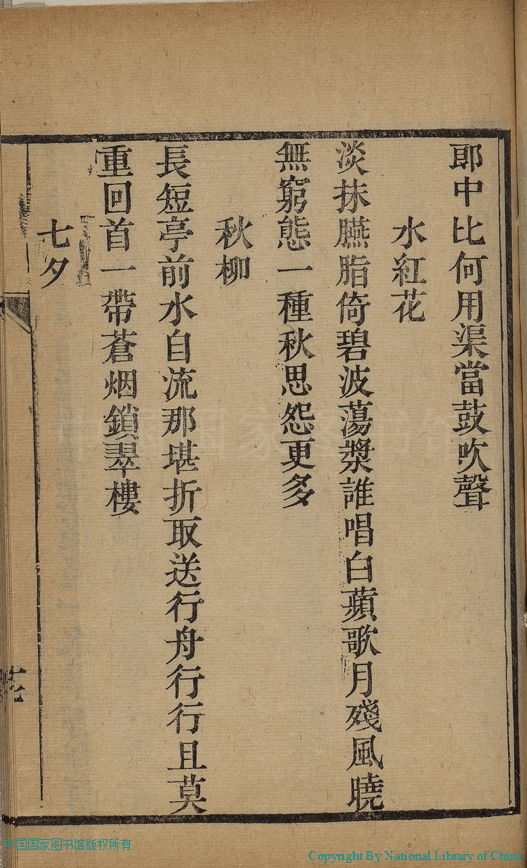 郎中比何用渠當鼓吹聲
水紅花
淡抹臙脂倚碧波蕩槳誰唱白蘋歌月殘風曉
無窮態一種秋思怨更多
秋柳
長短亭前水自流那堪折取送行舟行行且莫
重回首一帶蒼烟鎖翠樓
七夕
中国国家图书馆版权所有
Copyright By National Library of China